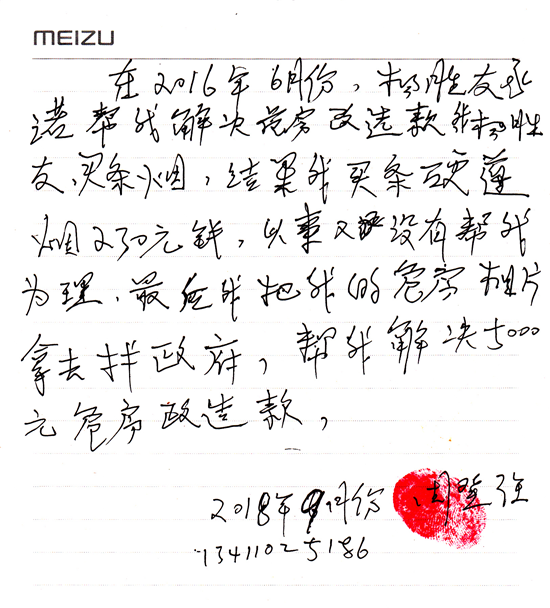 MEIZU
在2016年6月份，杨胜友承
诺帮我解决危房改造款我杨胜
友、买条烟，结果我买条硬莲
烟230元钱，以事又没有帮我
为理，最后我把我的危房相片
拿去找政府，帮我解决5000
元危房改造款，
2018年9月份 周登强
13411025186